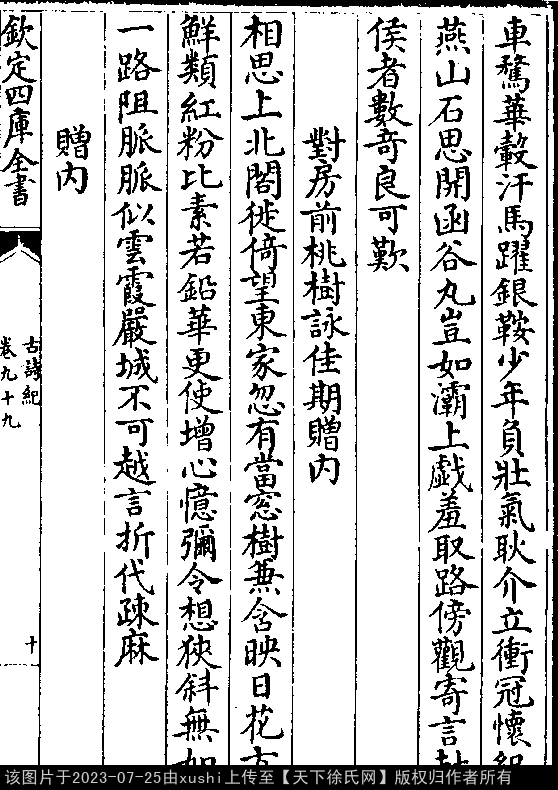 車騖華轂汗馬躍銀鞍少年負壯氣耿介立衝冠懷紀
燕山石思開函谷丸豈如灞上戯羞取路傍觀寄言封
侯者數奇良可歎
對房前桃樹詠佳期贈内
相思上北閣徙倚望東家忽有當窓樹兼含映日花方
鮮類紅粉比素若鉛華更使增心憶彌令想狹斜無如
一路阻脈脈似雲霞嚴城不可越言折代疎麻
贈内
欽定四庫全書
古詩紀
卷九十九
十
该图片于2023-07-25由xushi上传至【天下徐氏网】版权归作者所有